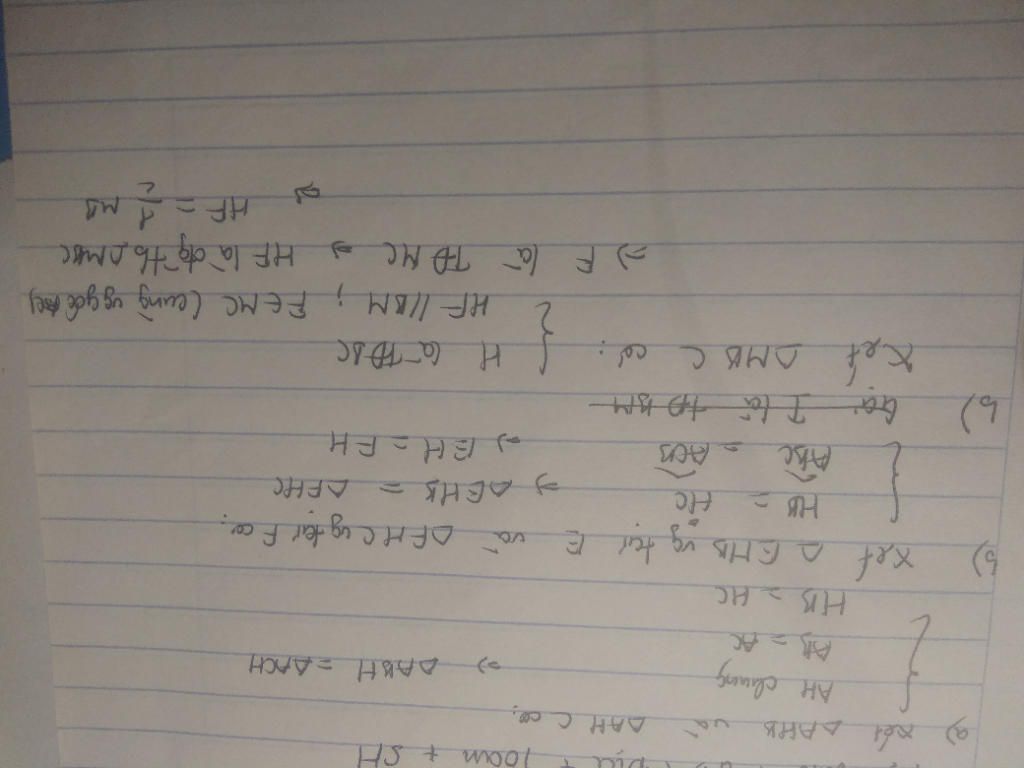 a) Xét ΔAHB và ΔAHC có:
AH chung
AB = AC ⇒ ΔABH = ΔACH
HB = HC
b) Xét ΔEHB vg tại E và ΔFHC vg tại F có:
HB = HC ⇒ ΔEHB = ΔFHC
ABC = ACB ⇒ EH = FH
b) Gọi I là TĐ BM
Xét ΔMBC có: H là TĐ BC
HF // BM ; F ∈ MC (cùng vg góc AC)
⇒ F là TĐ MC ⇒ HF là đg tb ΔMBC
⇒ HF = 1/2 MB